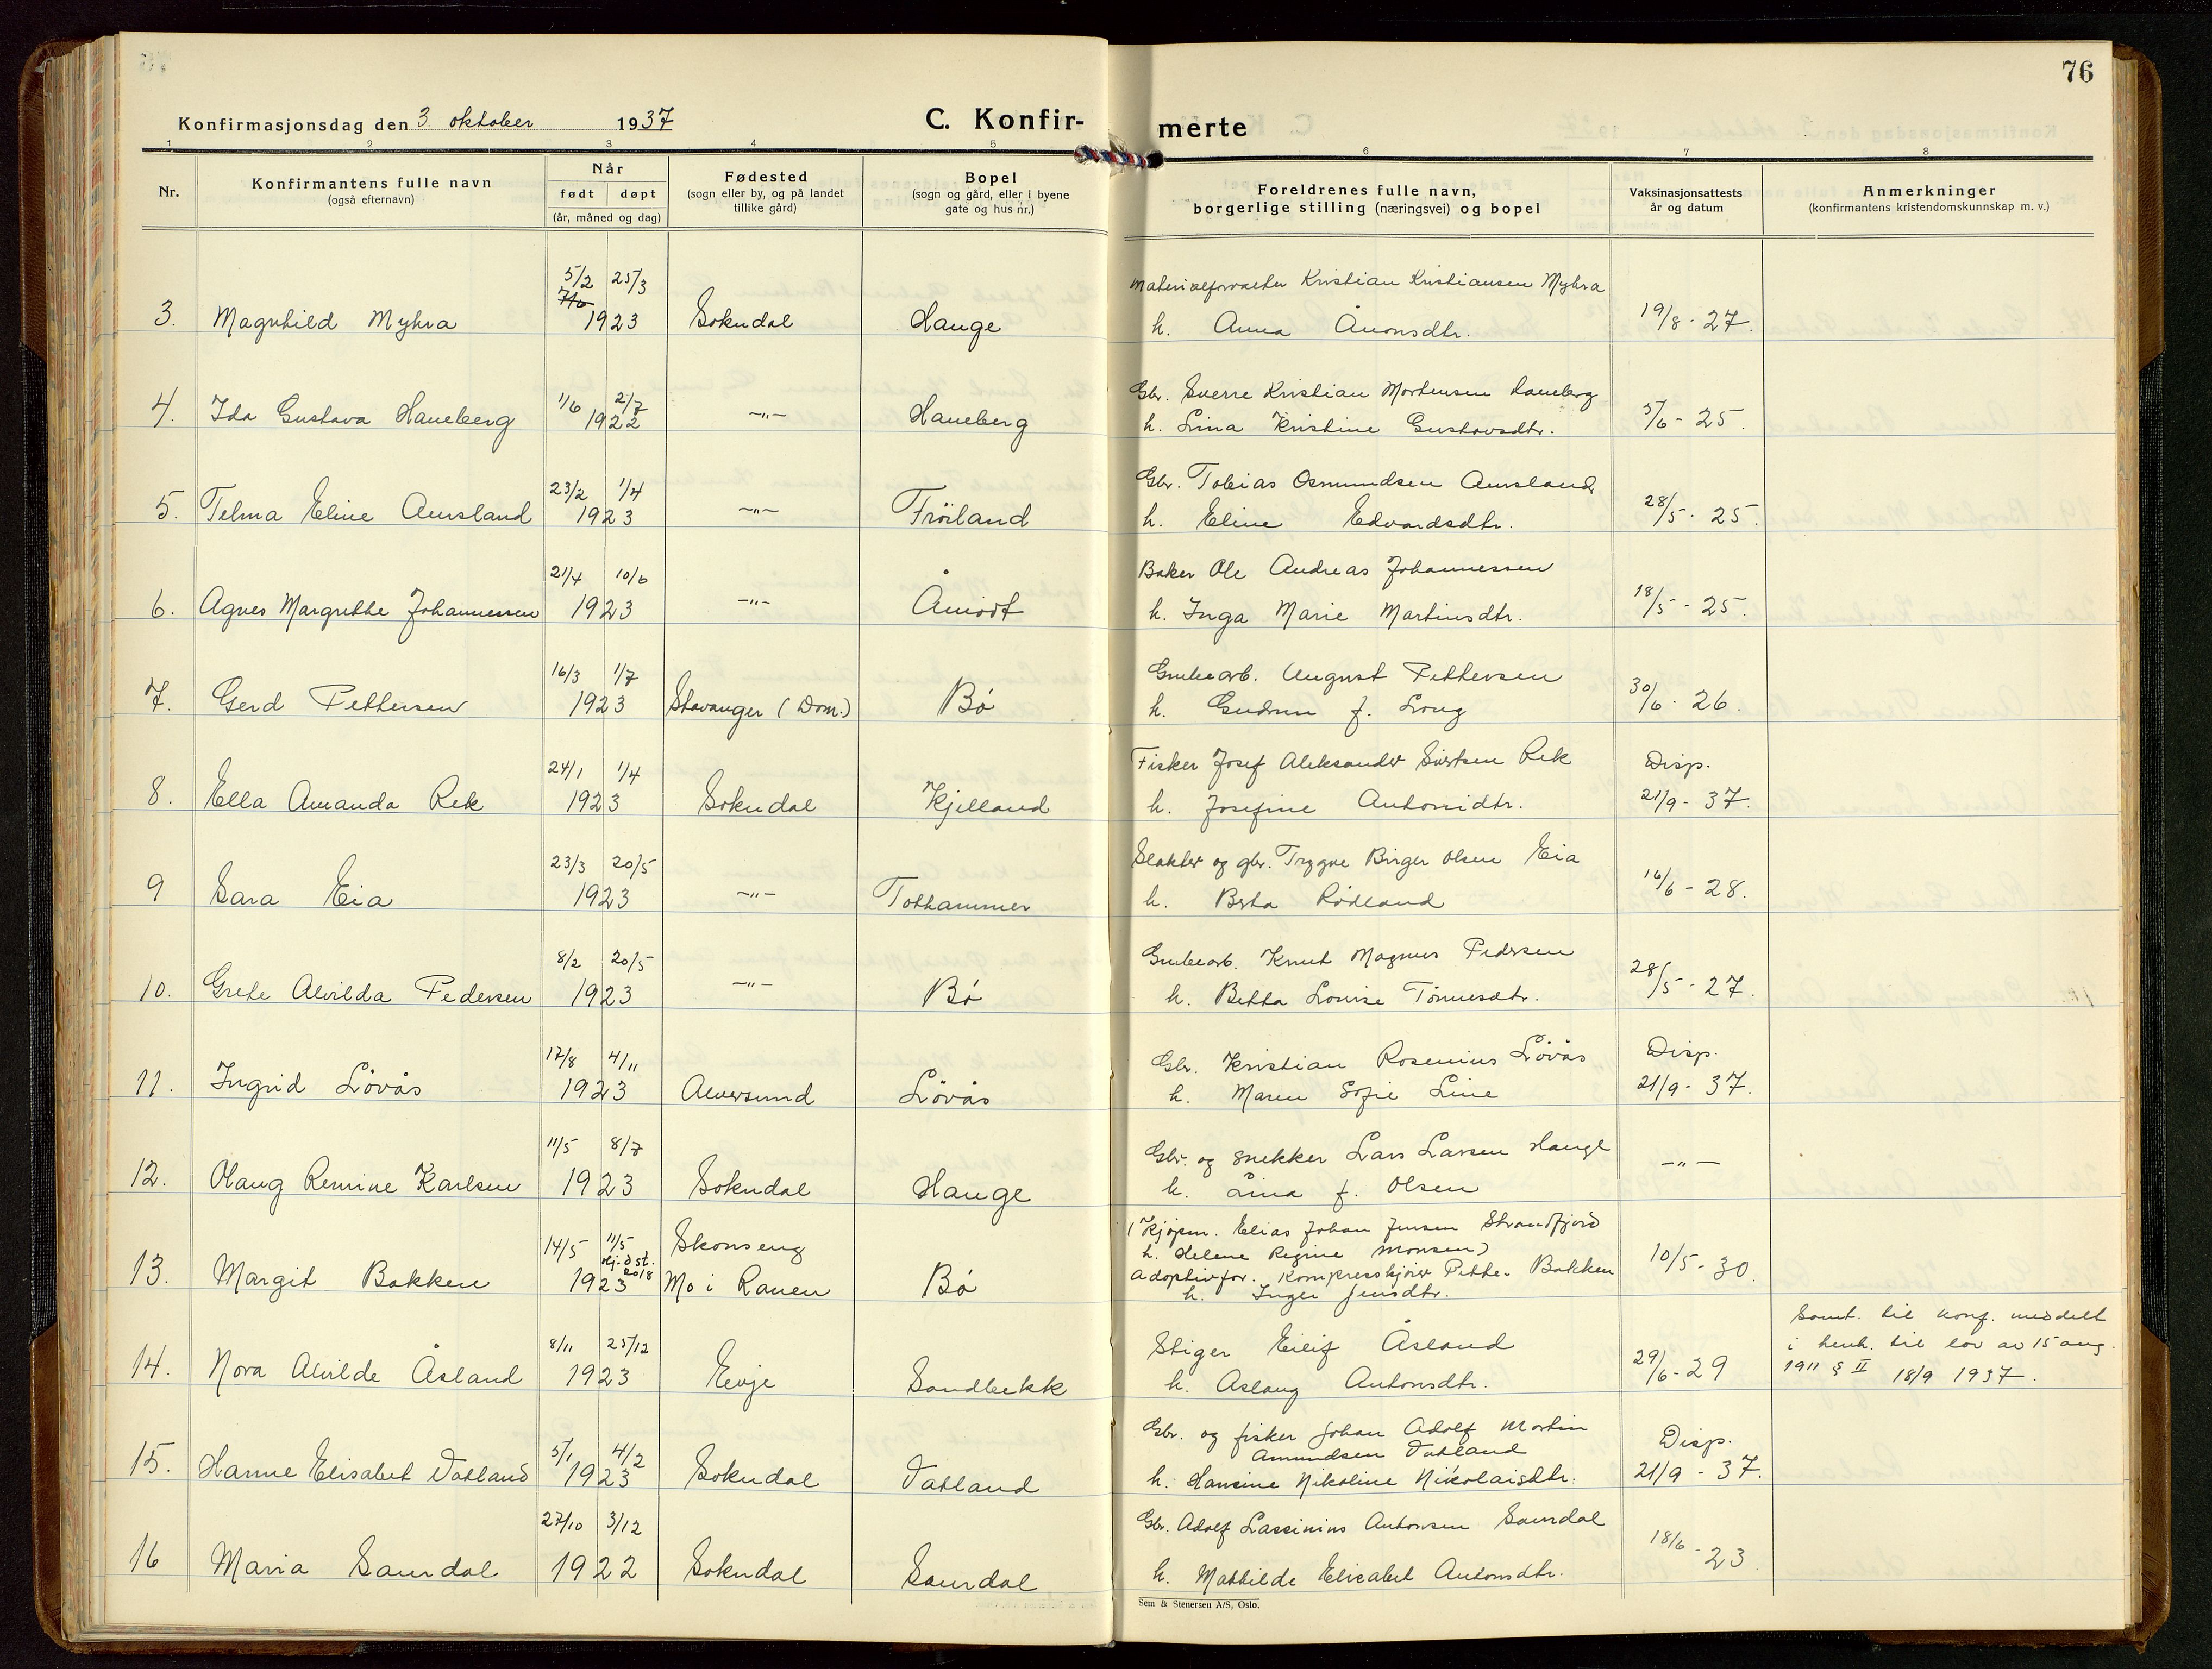 76
Konfirmasjonsdag den 3. oktober 1937
C. Konfir-
merte
1 2 3 4 5 6 7 8
Nr.
Konfirmantens fulle navn
(også efternavn)
Når
født døpt
(år, måned og dag)
Fødested
(sogn eller by, og på landet
tillike gård)
Bopel
(sogn og gård, eller i byene
gate og hus nr.)
Foreldrenes fulle navn,
borgerlige stilling (næringsvei) og bopel
Vaksinasjonsattests
år og datum
Anmerkninger
(konfirmantens kristendomskunnskap m. v.)
5/2 25/3 Materialforvalter Kristian Kristiansen Myhra
3. Magnhild Myhra 1923 Sokndal Hauge h. Anna Ånonsdtr. 19/8 - 27.
1/6 2/7 Gbr. Sverre Kristian Mortensen Haneberg
4. Ida Gustava Haneberg 1922 -"- Haneberg h. Lina Kristine Gustavsdtr. 5/6 - 25.
23/2 1/4 Gbr. Tobias Osmundsen Aursland
5. Telma Eline Aursland 1923 -"- Fröiland h. Eline Edvardsdtr. 28/5 - 25.
21/4 10/6 Baker Ole Andreas Johannessen
6. Agnes Margrethe Johannessen 1923 -"- Åmodt h. Inga Marie Martinsdtr. 18/5 - 25.
16/3 1/7 Grubearb. August Pettersen
7. Gerd Pettersen 1923 Stavanger (Dom.) Bö h. Gudrun f. Long 30/6 - 26.
24/1 1/4 Fisker Josef Aleksander Sivertsen Rek Disp.
8. Ella Amanda Rek 1923 Sokndal Kjelland h. Josefine Antonidtr. 21/9 - 37.
23/3 20/5 Slakter og gbr. Trygve Birger Olsen Eia
9 Sara Eia 1923 -"- Tothammer h. Berta Rödland 16/6 - 28.
8/2 20/5 Grubearb. Knut Magnus Pedersen
10. Grete Alvilda Pedersen 1923 -"- Bö h. Betta Lovise Tönnesdtr. 28/5 - 27.
17/8 4/11 Gbr. Kristian Rosenius Lövås Disp.
11. Ingrid Lövås 1923 Alversund Lövås h. Maren Sofie Line 21/9 - 37.
11/5 8/7 Gbr. og snekker Lars Larsen Hauge
12. Olaug Remine Karlsen 1923 Sokndal Hauge h. Lina f. Olsen -"-
14/5 11/5 Skonseng (Kjöpm. Elias Johan Jensen Strandfjord
hj.d st. 20/8 h. Helene Regine Monsen)
13. Margit Bakken 1923 Mo i Ranen Bö Adoptivfor. Kompressorkjörer Petter Bakken 10/5 - 30.
h. Inger Jensdtr.
8/11 25/12 Stiger Eilif Åsland Samt. til konf. meddelt
i henh. til lov av 15 aug.
14. Nora Alvilde Åsland 1923 Evje Sandbekk h. Aslaug Antonsdtr. 29/6 - 29 1911 § II 18/9 1937.
5/1 4/2 Gbr. og fisker Johan Adolf Martin
Amundsen Vatland Disp.
15. Hanne Elisabet Vatland 1923 Sokndal Vatland h. Hansine Nikoline Nikolaisdtr. 21/9 - 37.
27/10 3/12 Gbr. Adolf Lassinius Antonsen Saurdal
16 Maria Saurdal 1922 Sokndal Saurdal h. Mathilde Elisabet Antonsdtr. 18/6 - 23
Sem & Stenersen A/S, Oslo.